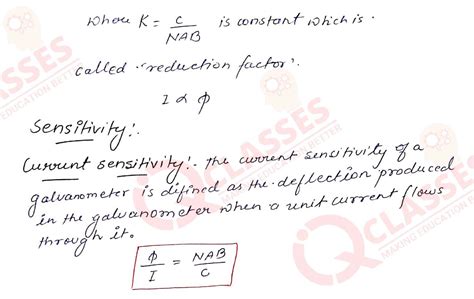 where K = C/NAB is constant which is.
called 'reduction factor'.
I α ϕ
Sensitivity:.
Current sensitivity:. the current sensitivity of a
galvanometer is difined as the deflection produced
in the galvanometer when a unit current flows
through it.
ϕ/I = NAB/C
IQ CLASSES
MAKING EDUCATION BETTER